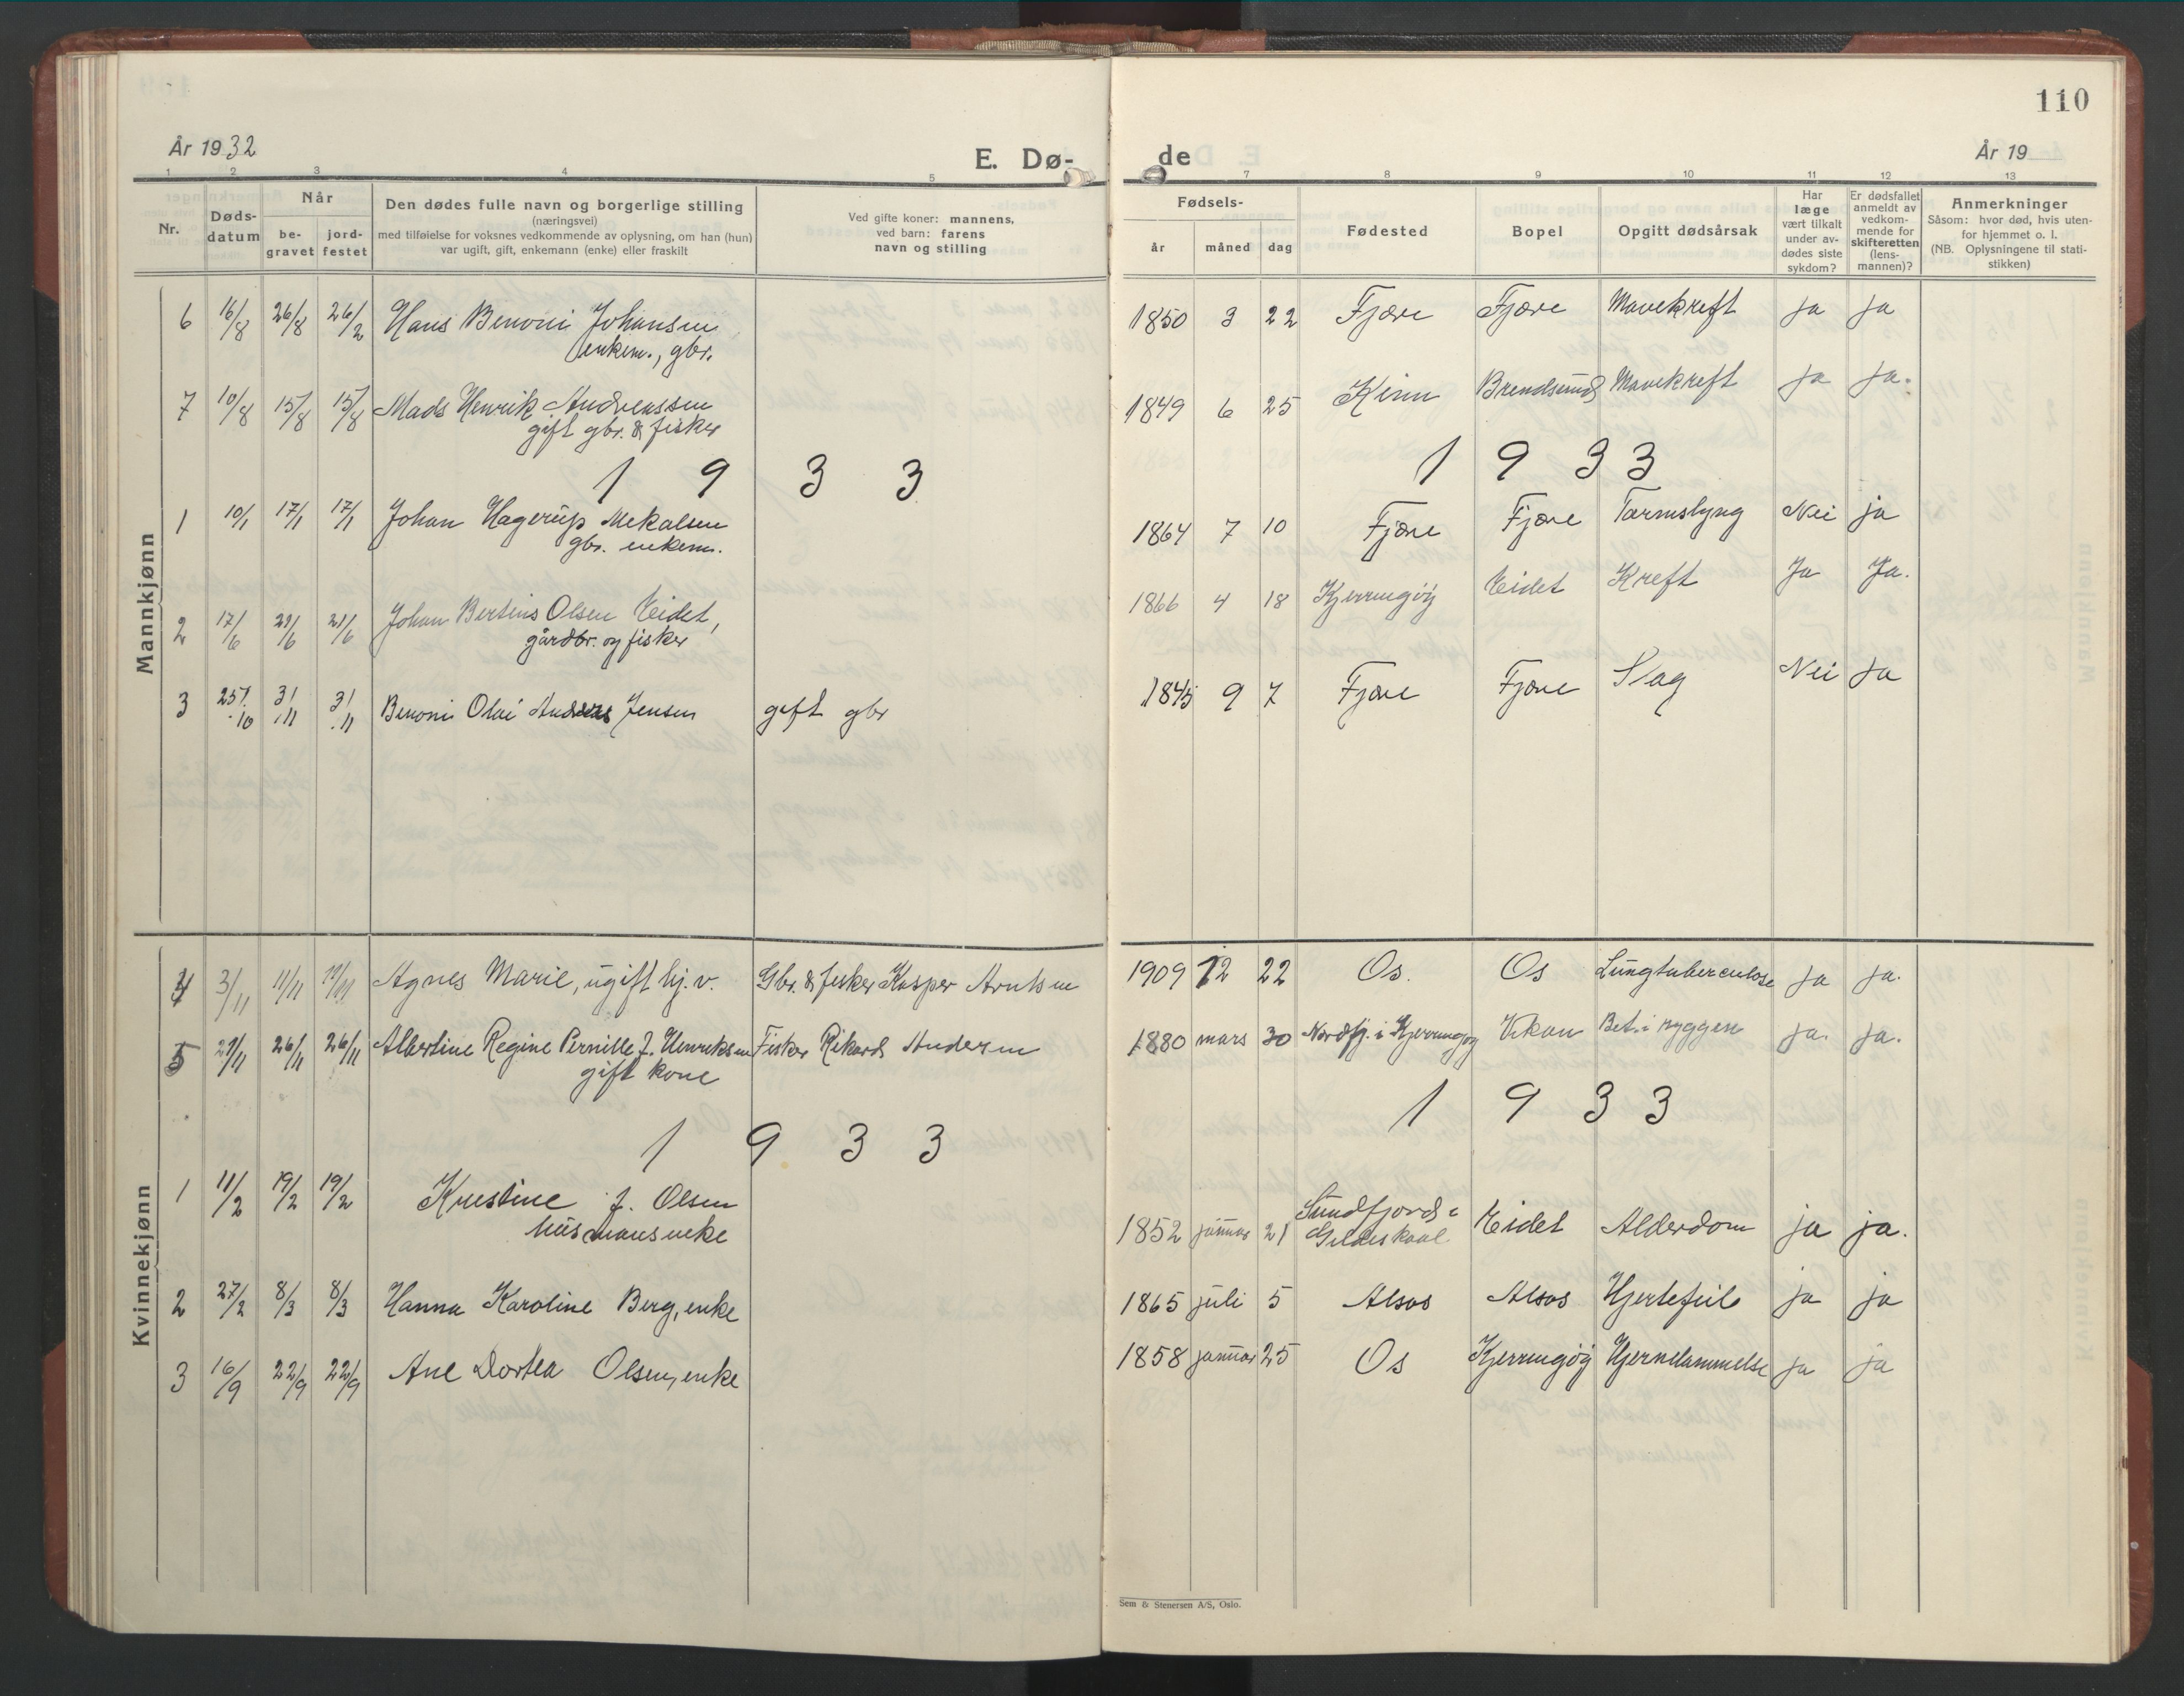 110
År 1932
E. Dø-
de
År 19
1 2 3 4 5
7 8 9 10 11 12 13
Nr.
Døds-
datum
Når
be-
gravet
jord-
festet
Den dødes fulle navn og borgerlige stilling
(næringsvei)
med tilføielse for voksnes vedkommende av oplysning, om han (hun)
var ugift, gift, enkemann (enke) eller fraskilt
Ved gifte koner: mannens,
ved barn: farens
navn og stilling
Fødsels-
år måned dag
Fødested
Bopel
Opgitt dødsårsak
Har
læge
vært tilkalt
under av-
dødes siste
sykdom?
Er dødsfallet
anmeldt av
vedkom-
mende for
skifteretten
(lens-
mannen)?
Anmerkninger
Såsom: hvor død, hvis uten-
for hjemmet o. l.
(NB. Oplysningene til stati-
stikken)
Mannkjønn
6 16/8 26/8 26/2 Hans Benoni Johansen 1850 3 22 Fjære Fjære Mavekreft ja ja
enkem., gbr.
7 10/8 15/8 15/8 Mads Henrik Andreassen 1849 6 25 Kinn Brendsund Mavekreft ja ja.
gift gbr. & fisker
1 9 3 3 1 9 3 3
1 10/1 17/1 17/1 Johan Hagerup Mekalsen 1864 7 10 Fjære Fjære Tarmslyng Nei ja
gbr. enkem.
2 17/6 21/6 21/6 Johan Bertius Olsen Eidet, 1866 4 18 Kjerringøy Eidet Kreft Ja Ja.
gårdbr. og fisker
3 25/10 3/11 3/11 Benoni Olai Andreas Jensen gift gbr 1845 9 7 Fjære Fjære Slag Nei ja
Kvinnekjønn
4 3/11 11/11 11/11 Agnes Marie, ugift hj. v. Gbr. & fisker Kasper Arntsen 1909 12 22 Os. Os Lungtuberculose ja ja.
5 21/11 26/11 26/11 Albertine Regine Pernille J. Henriksen Fisker Rikard Andersen 1880 mars 30 Nordfj. i Kjerringøy Bet. i ryggen ja. ja.
gift kone
1 9 3 3 1 9 3 3
1 11/2 19/2 19/2 Kristine J. Olsen 1852 januar 21 Sundfjord i Gildeskaal Eidet Alderdom ja ja.
husmansenke
2 27/2 8/3 8/3 Hanna Karoline Berg, enke 1865 juli 5 Alsos Alsos Hjertefeil ja ja
3 16/9 22/9 22/9 Ane Dortea Olsen, enke 1858 januar 25 Os Kjerringøy Hjernelammelse ja ja
Sem & Stenersen A/S, Oslo.